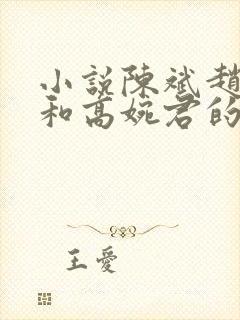 小説陳斌趙
和高婉君的
王愛